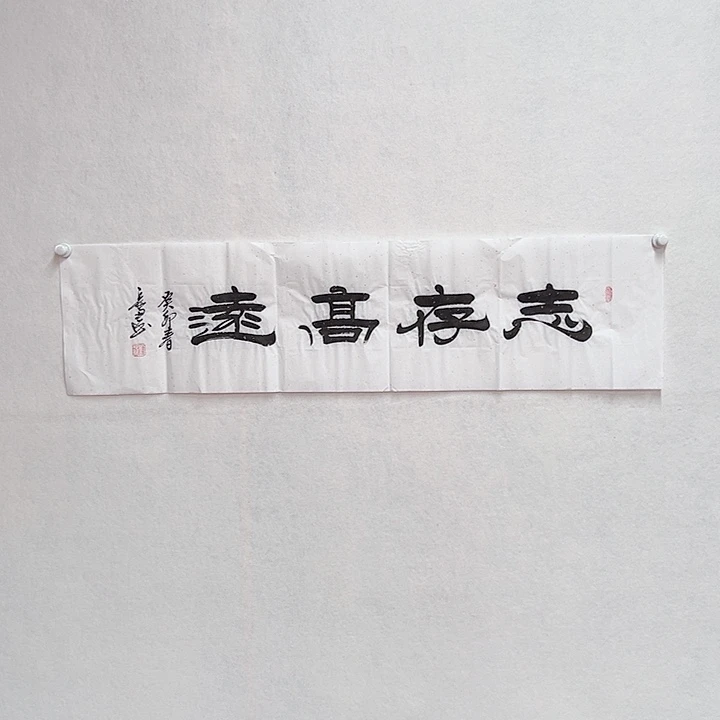 志存高遠
癸卯春